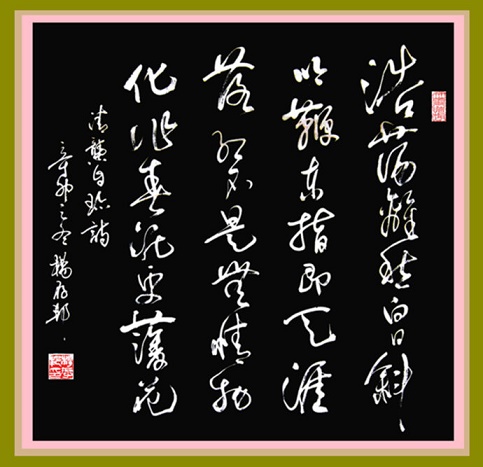 浩蕩離愁白日斜
吟鞭東指即天涯
落紅不是無情物
化作春泥更護花
清龔自珍詩
辛卯之冬楊